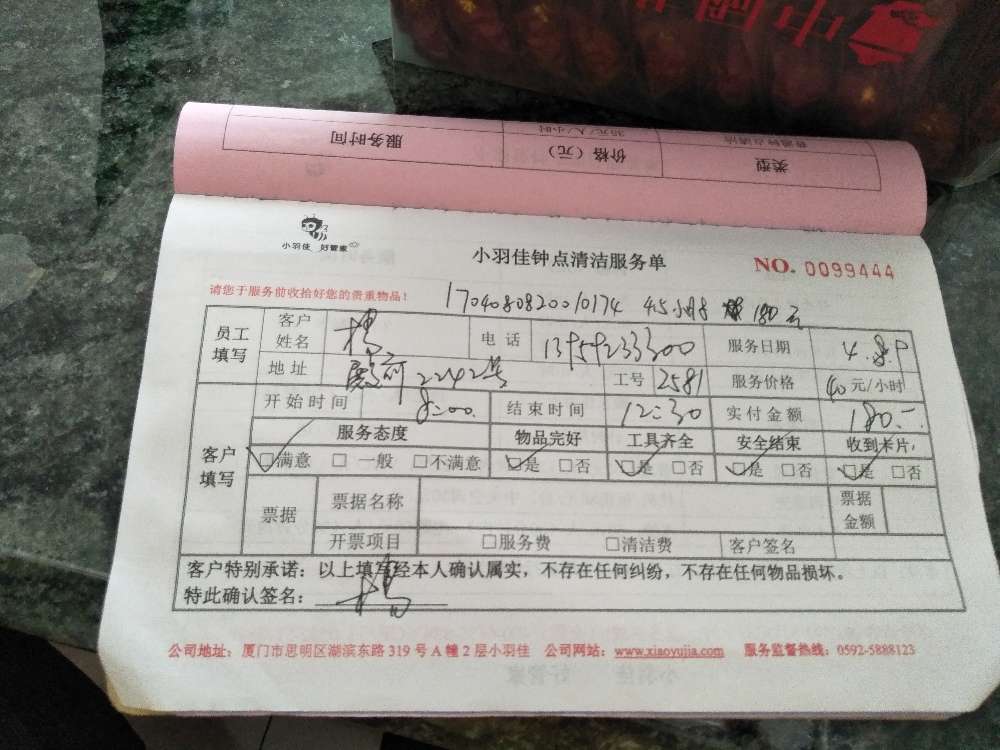 中國
类型 价格（元） 服务时间
普通钟点清洁 30元/人/小时
小羽佳 好管家
小羽佳钟点清洁服务单 NO. 0099444
请您于服务前收拾好您的贵重物品！
1704080820010174 4.5小时 180元
员工填写 客户姓名 杨 电话 13959233300 服务日期 4.8日
地址 殿前2242号 工号 2581 服务价格 40元/小时
客户填写 开始时间 8:00. 结束时间 12:30 实付金额 180.-
服务态度 物品完好 工具齐全 安全结束 收到卡片
□满意 □一般 □不满意 □是 □否 □是 □否 □是 □否 □是 □否
票据 票据名称 票据金额
开票项目 □服务费 □清洁费 客户签名
客户特别承诺：以上填写经本人确认属实，不存在任何纠纷，不存在任何物品损坏。
特此确认签名： 杨
公司地址：厦门市思明区湖滨东路319号A幢2层小羽佳 公司网站：www.xiaoyujia.com 服务监督热线：0592-5888123